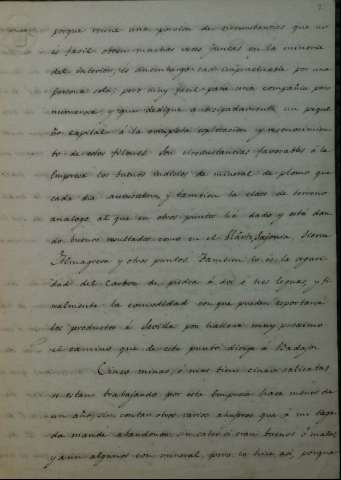 porque reune una porcion de circunstancias que no
es facil obten muchas veces juntas en la mineria
del interior; es sin embargo casi impracticable por una
persona sola; pero muy facil para una compañia por
numerosa y que dedique a un peque
ño capital á la completa esplotacion y reconocimien
to de estos filones. Son circunstancias favorables á la
Empresa los buenos metales de mineral de plomo que
cada dia aumentan, y tambien la clase de terreno
analogo al que en otros puntos há dado y esta dan
do buenos resultados como en el Hartz, Sajonia, Sierra
Almagrera y otros puntos. Tambien lo es la
dad del Carbon de piedra á dos ó tres leguas, y fi
nalmente la comodidad con que pueden esportarse
los productos á Sevilla por hallarse muy proximo
el camino que de este punto dirige á Badajoz.
Cinco minas, ó mas bien cinco calicatas
se estan trabajando por esta Empresa hace menos de
un año, sin contar otros varios que á mi llega
da mandé abandonar, sin saber si eran buenos ó malos
y aun algunos con mineral, pero lo hice asi, porque